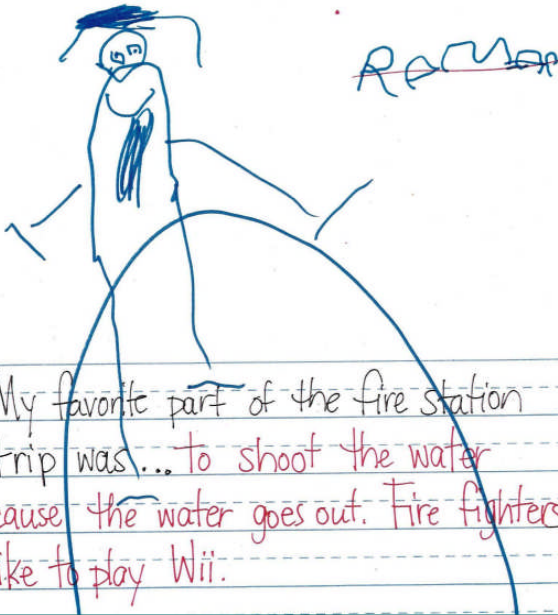 My favorite part of the fire station
trip was... to shoot the water
cause the water goes out. Fire fighters
ike to play Wii.